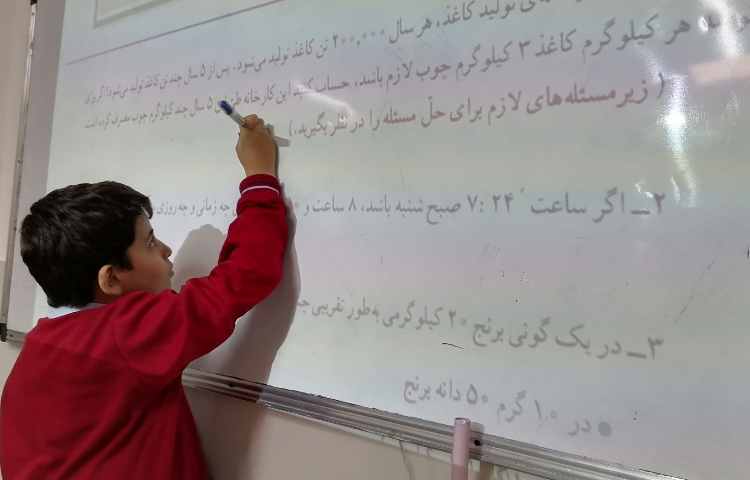 تولید کاغذ، هر سال ۲۰۰,۰۰۰ تن کاغذ تولید می‌شود. پس از ۵ سال چند تن کاغذ تولید می‌شود؟ اگر برای
هر کیلوگرم کاغذ ۳ کیلوگرم چوب لازم باشد، حساب کنید این کارخانه ۵ سال چند کیلوگرم چوب مصرف کرده است.
( زیر مسئله‌های لازم برای حلّ مسئله را در نظر بگیرید.)
۲ــ اگر ساعت ۷:۲۴ صبح شنبه باشد، ۸ ساعت و چه زمانی و چه روزی
۳ــ در یک گونی برنج ۲۰ کیلوگرمی به‌طور تقریبی
● در ۱۰ گرم ۵۰ دانه برنج